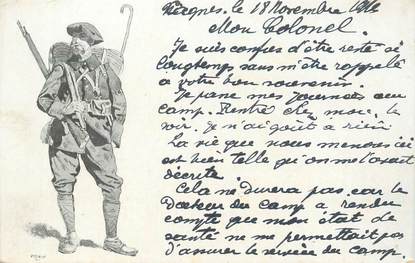 le 18 Novembre
Mon Colonel.
Je suis confus d'être resté si
longtemps sans m'être rappelé
à votre bon souvenir.
Je passe mes journées au
camp. Rentré chez moi, le
soir, je n'ai goût à rien
La vie que nous menons ici
est bien telle qu'on me l'avait
décrite.
Cela ne durera pas, car le
Docteur du camp a rendu
compte que mon état de
santé ne me permettait pas
d'assurer le service du camp.